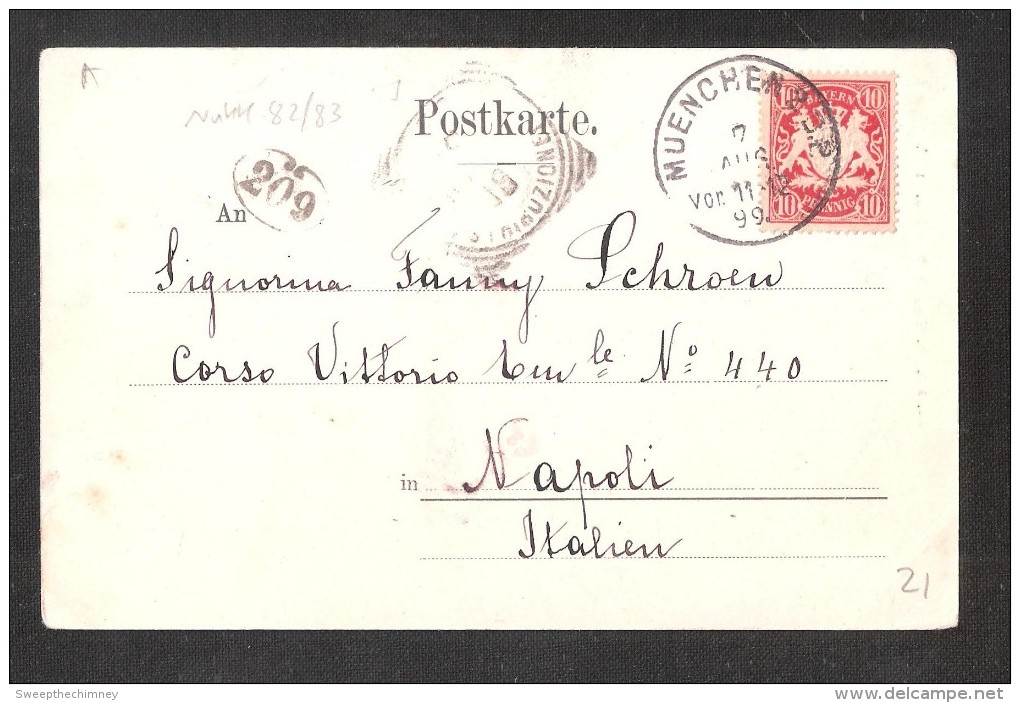 A
Nukk 82/83
Postkarte.
209
DISTRIBUZIONE
MUENCHEN
7
AUG
Vor. 11-12
99
BAYERN
10 10
10 PFENNIG 10
An
Signorina Fanny Schroen
Corso Vittorio Em le No 440
in Napoli
Italien
21
Sweepthechimney
www.delcampe.net